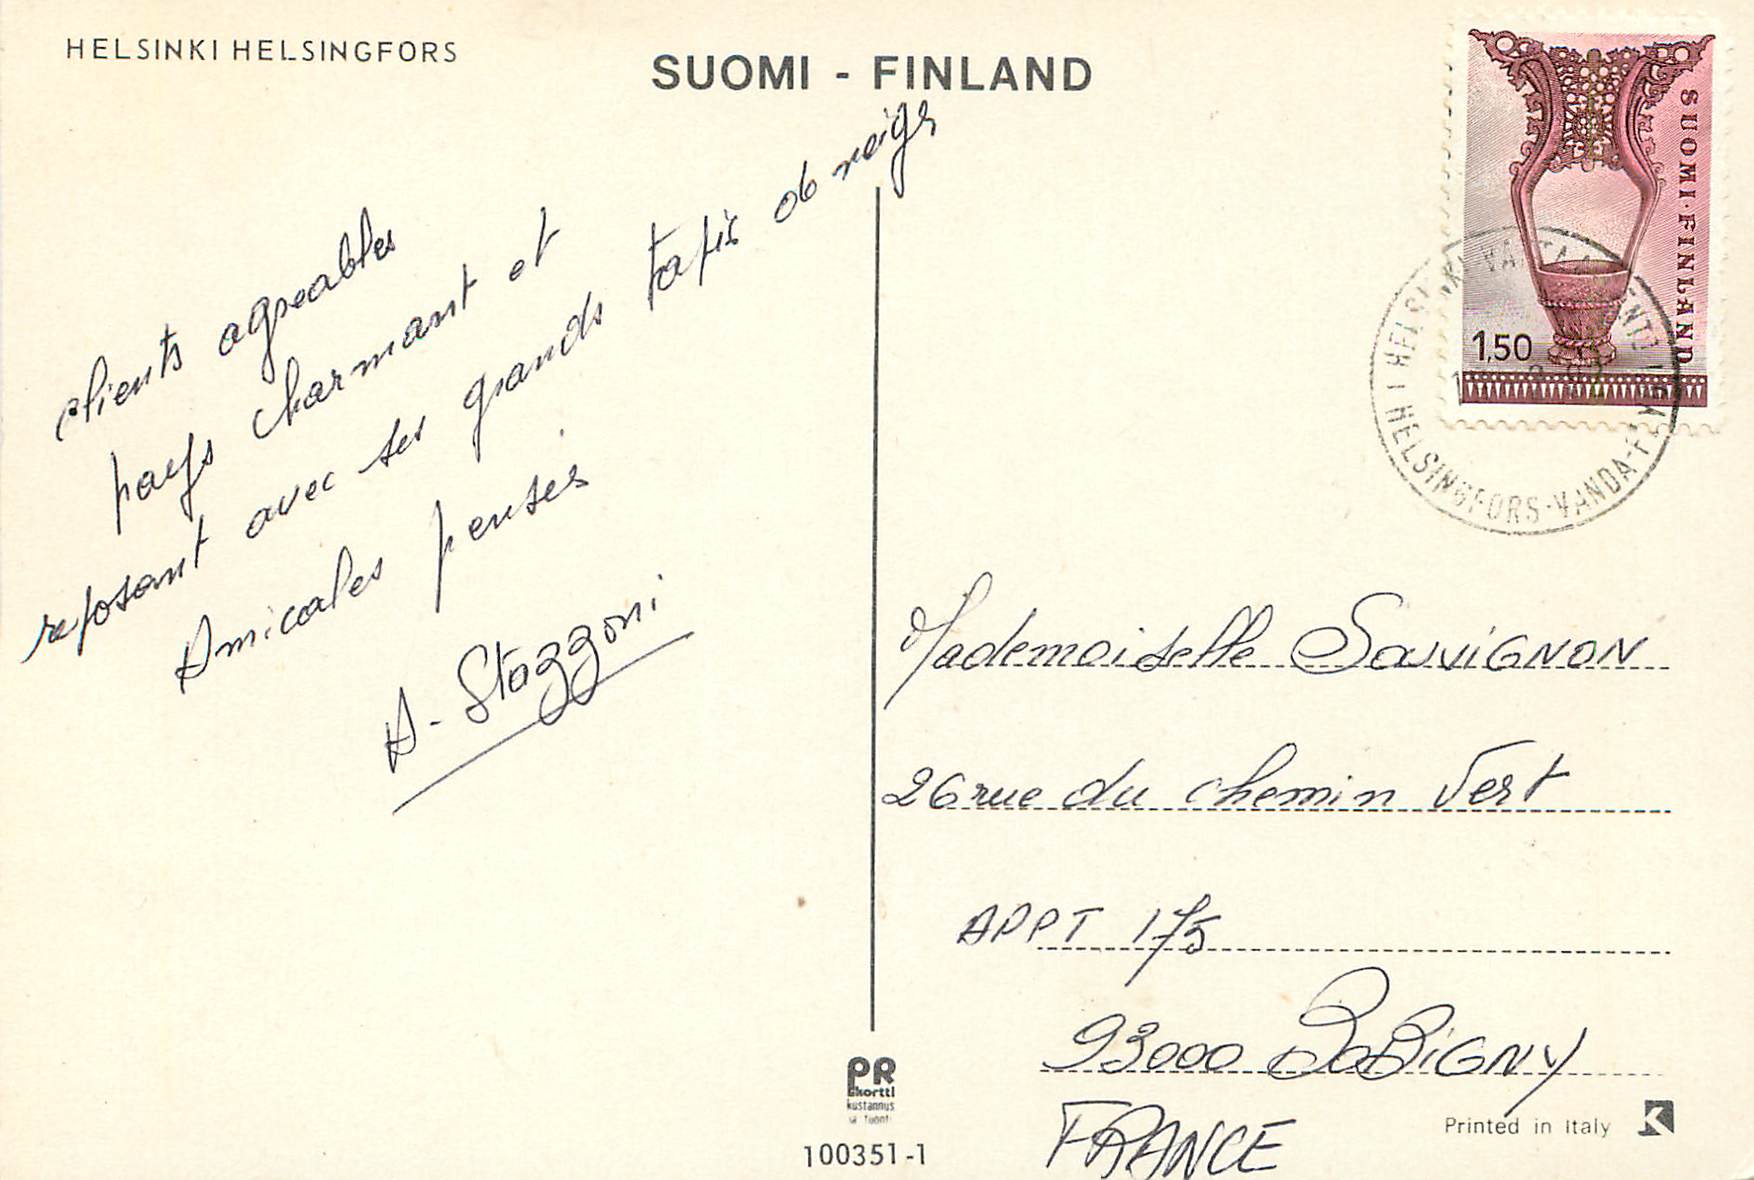 HELSINKI HELSINGFORS
SUOMI - FINLAND
clients agreables
pays charmant et
reposant avec ses grands tapis de neige
Amicales pensées
A - Stazzoni
SUOMI·FINLAND
1,50
HELSINGFORS-VANDA
Mademoiselle SAUVIGNON
26 rue du chemin Vert
APPT 175
93000 BOBIGNY
FRANCE
PR
kortti
kustannus
100351-1
Printed in Italy
K